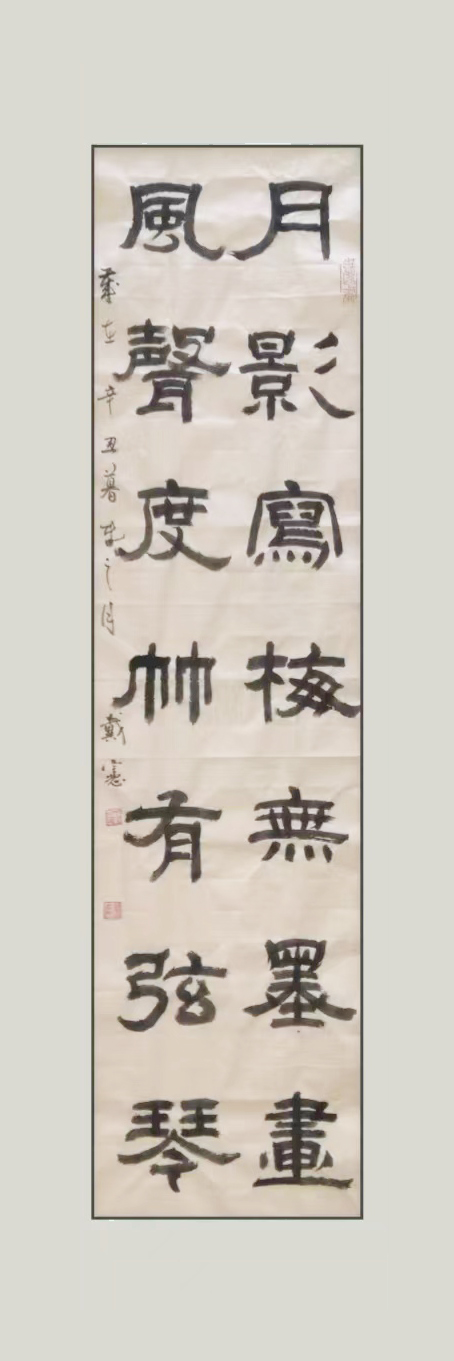 月影寫梅無墨畫
風聲度竹有弦琴
歲在辛丑暮春之月
戴憲